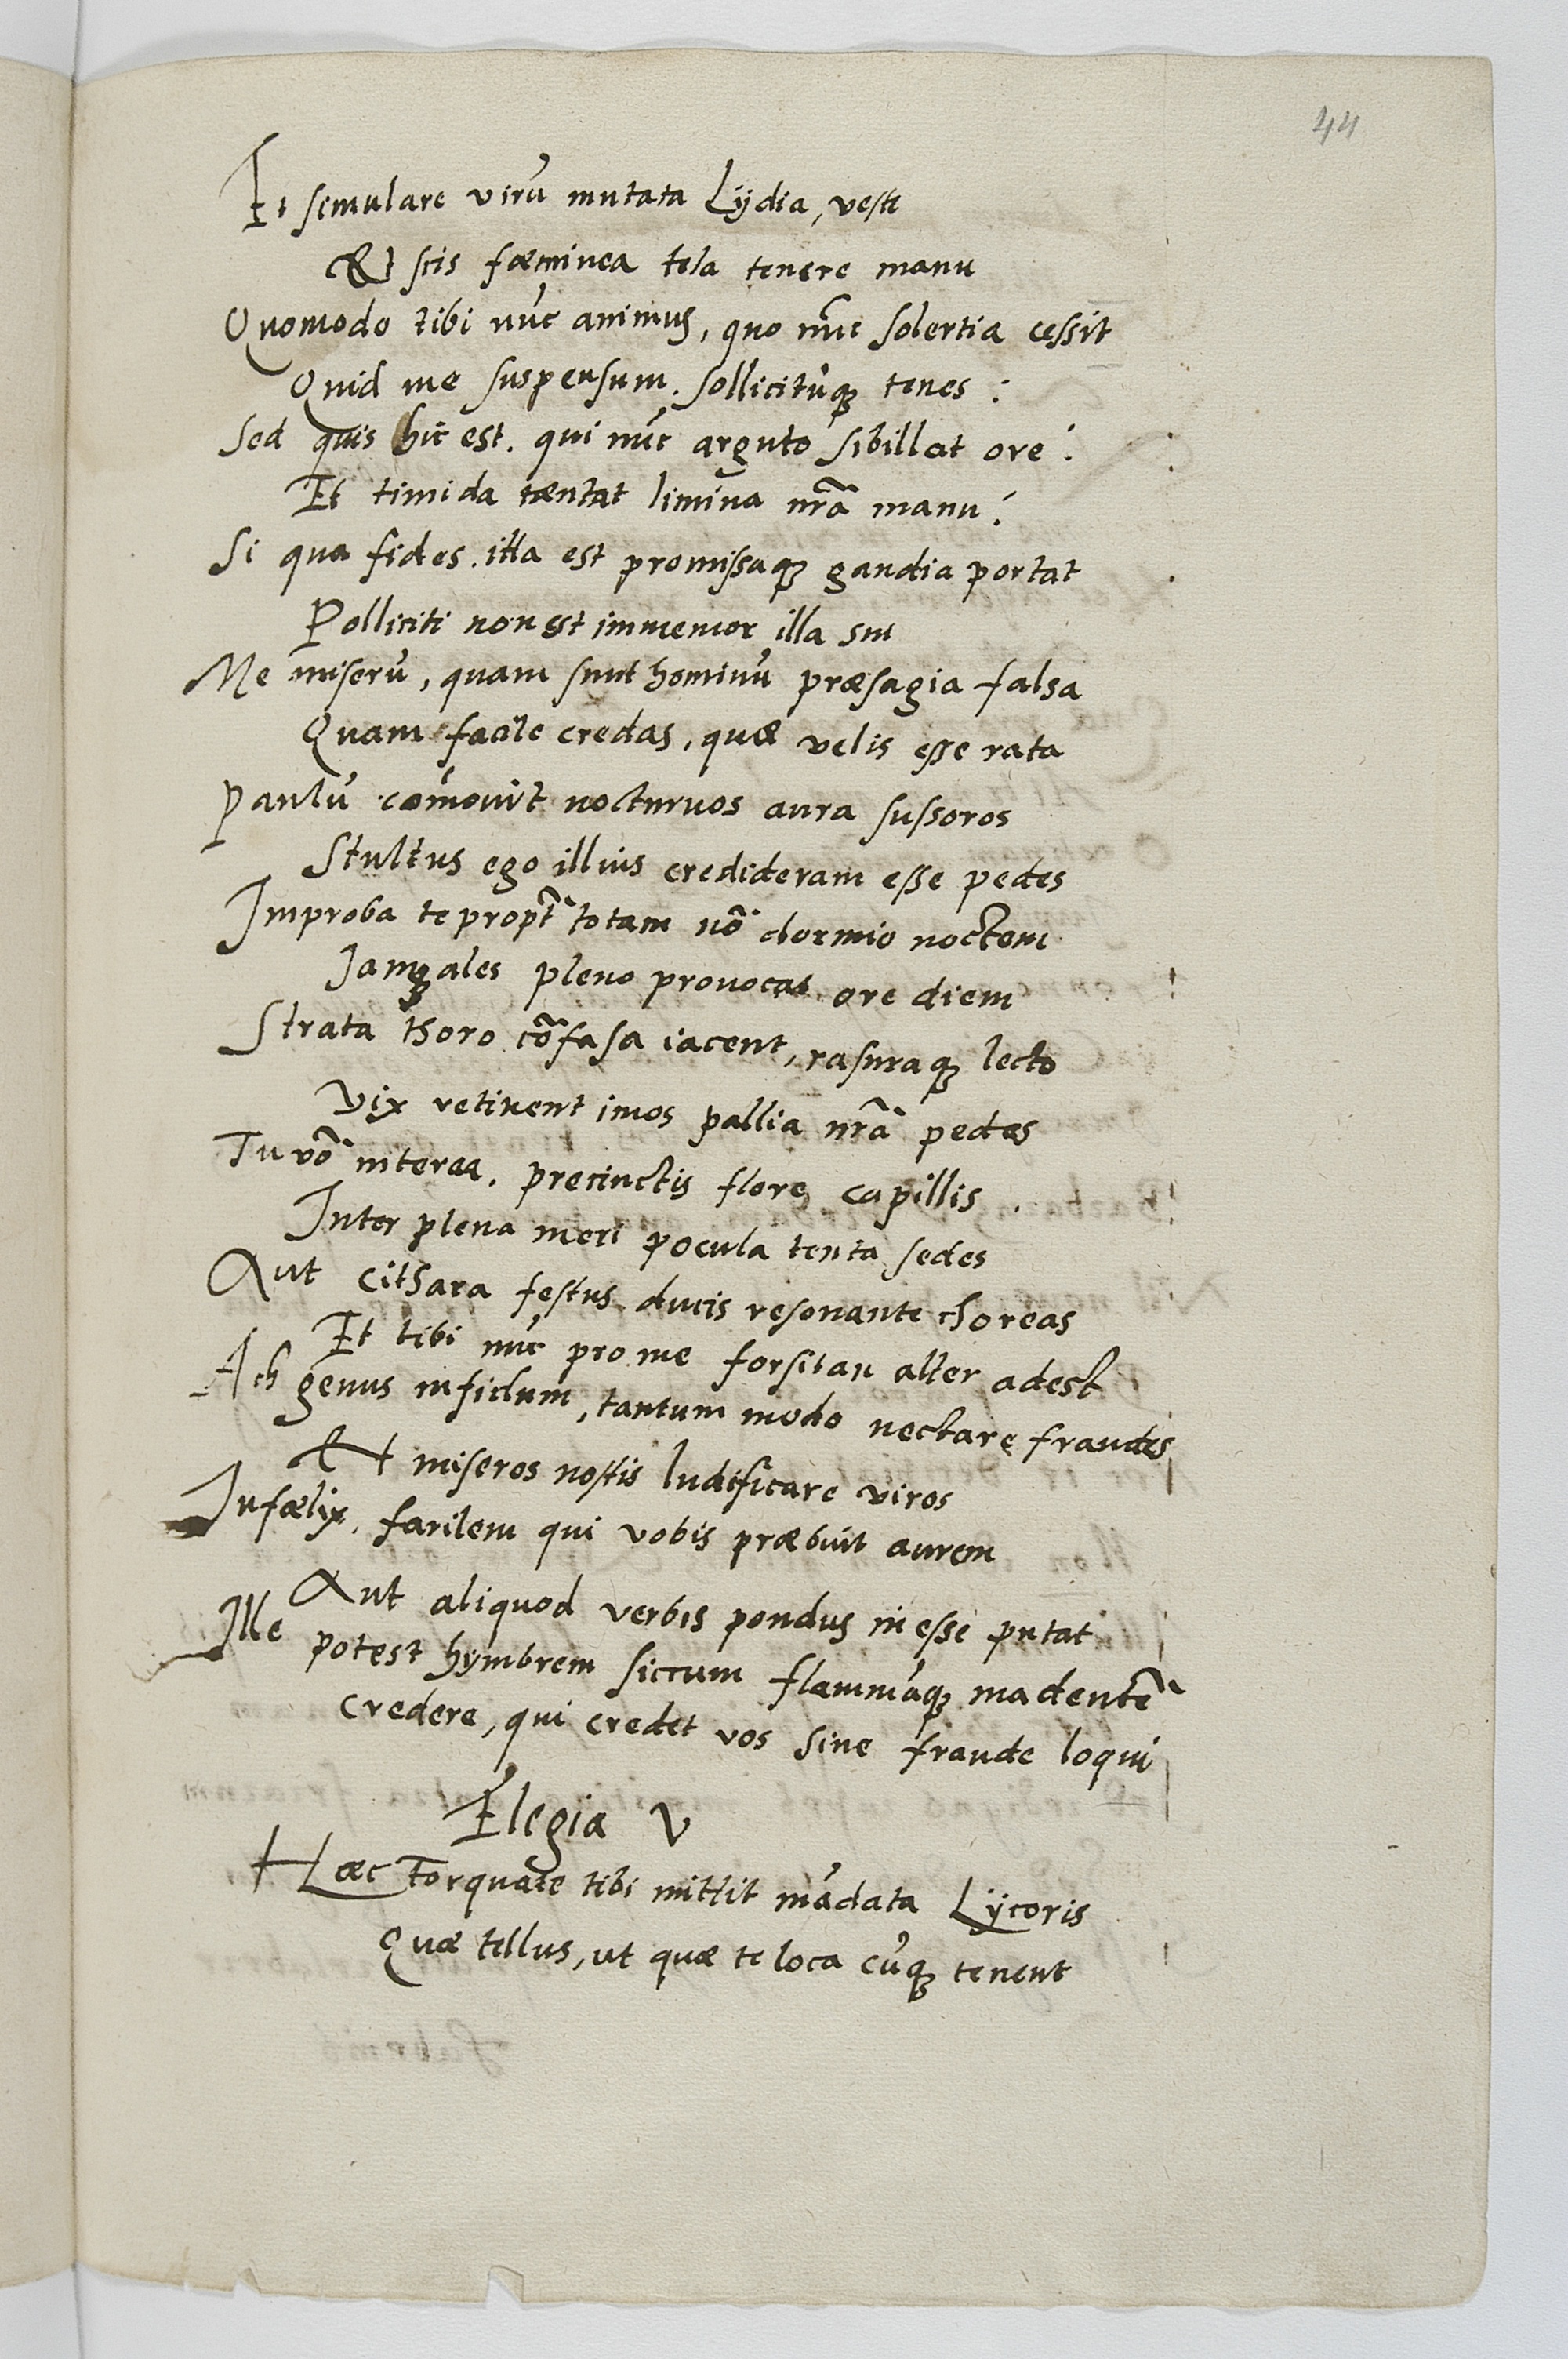 44
Et simulare virū mutata Lÿdia, veste
Et scis fœminea tela tenere manu
Quomodo tibi nūc animus, quo nūc solertia cessit
Quid me suspensum. sollicitūq; tenes :
Sed quis hic est. qui nūc arguto sibillat ore ?
Et timida tæntat limina nrā manu ?
Si qua fides. illa est promissaq; gaudia portat
Polliciti non est immemor illa sui
Me miserū, quam sunt hominū præsagia falsa
Quam facile credas, quæ velis esse rata
Paulū cōmovit nocturnos aura sussoros
Stultus ego illius credideram esse pedes
Improba te propt̄ totam nō dormio noctem
Jamq; ales pleno provocat ore diem
Strata thoro cōfasa iacent, rasuraq; lecto
Vix retinent imos pallia nrā pedes
Tu vō interea. precinctis flore capillis .
Inter plena meri pocula tenta sedes
Aut cithara festus ducis resonante choreas
Et tibi nūc pro me forsitan alter adest
Ach genus infidum, tantum modo nectare fraudes
Et miseros nostis ludificare viros
Infælix. facilem qui vobis præbuit aurem
Aut aliquod verbis pondus in esse putat
Ille potest hymbrem siccum flammāq; madentē
Credere, qui credet vos sine fraude loqui
Elegia V
Hæc Torquate tibi mittit mādata Lÿcoris
Quæ tellus, ut quæ te loca cūq; tenent